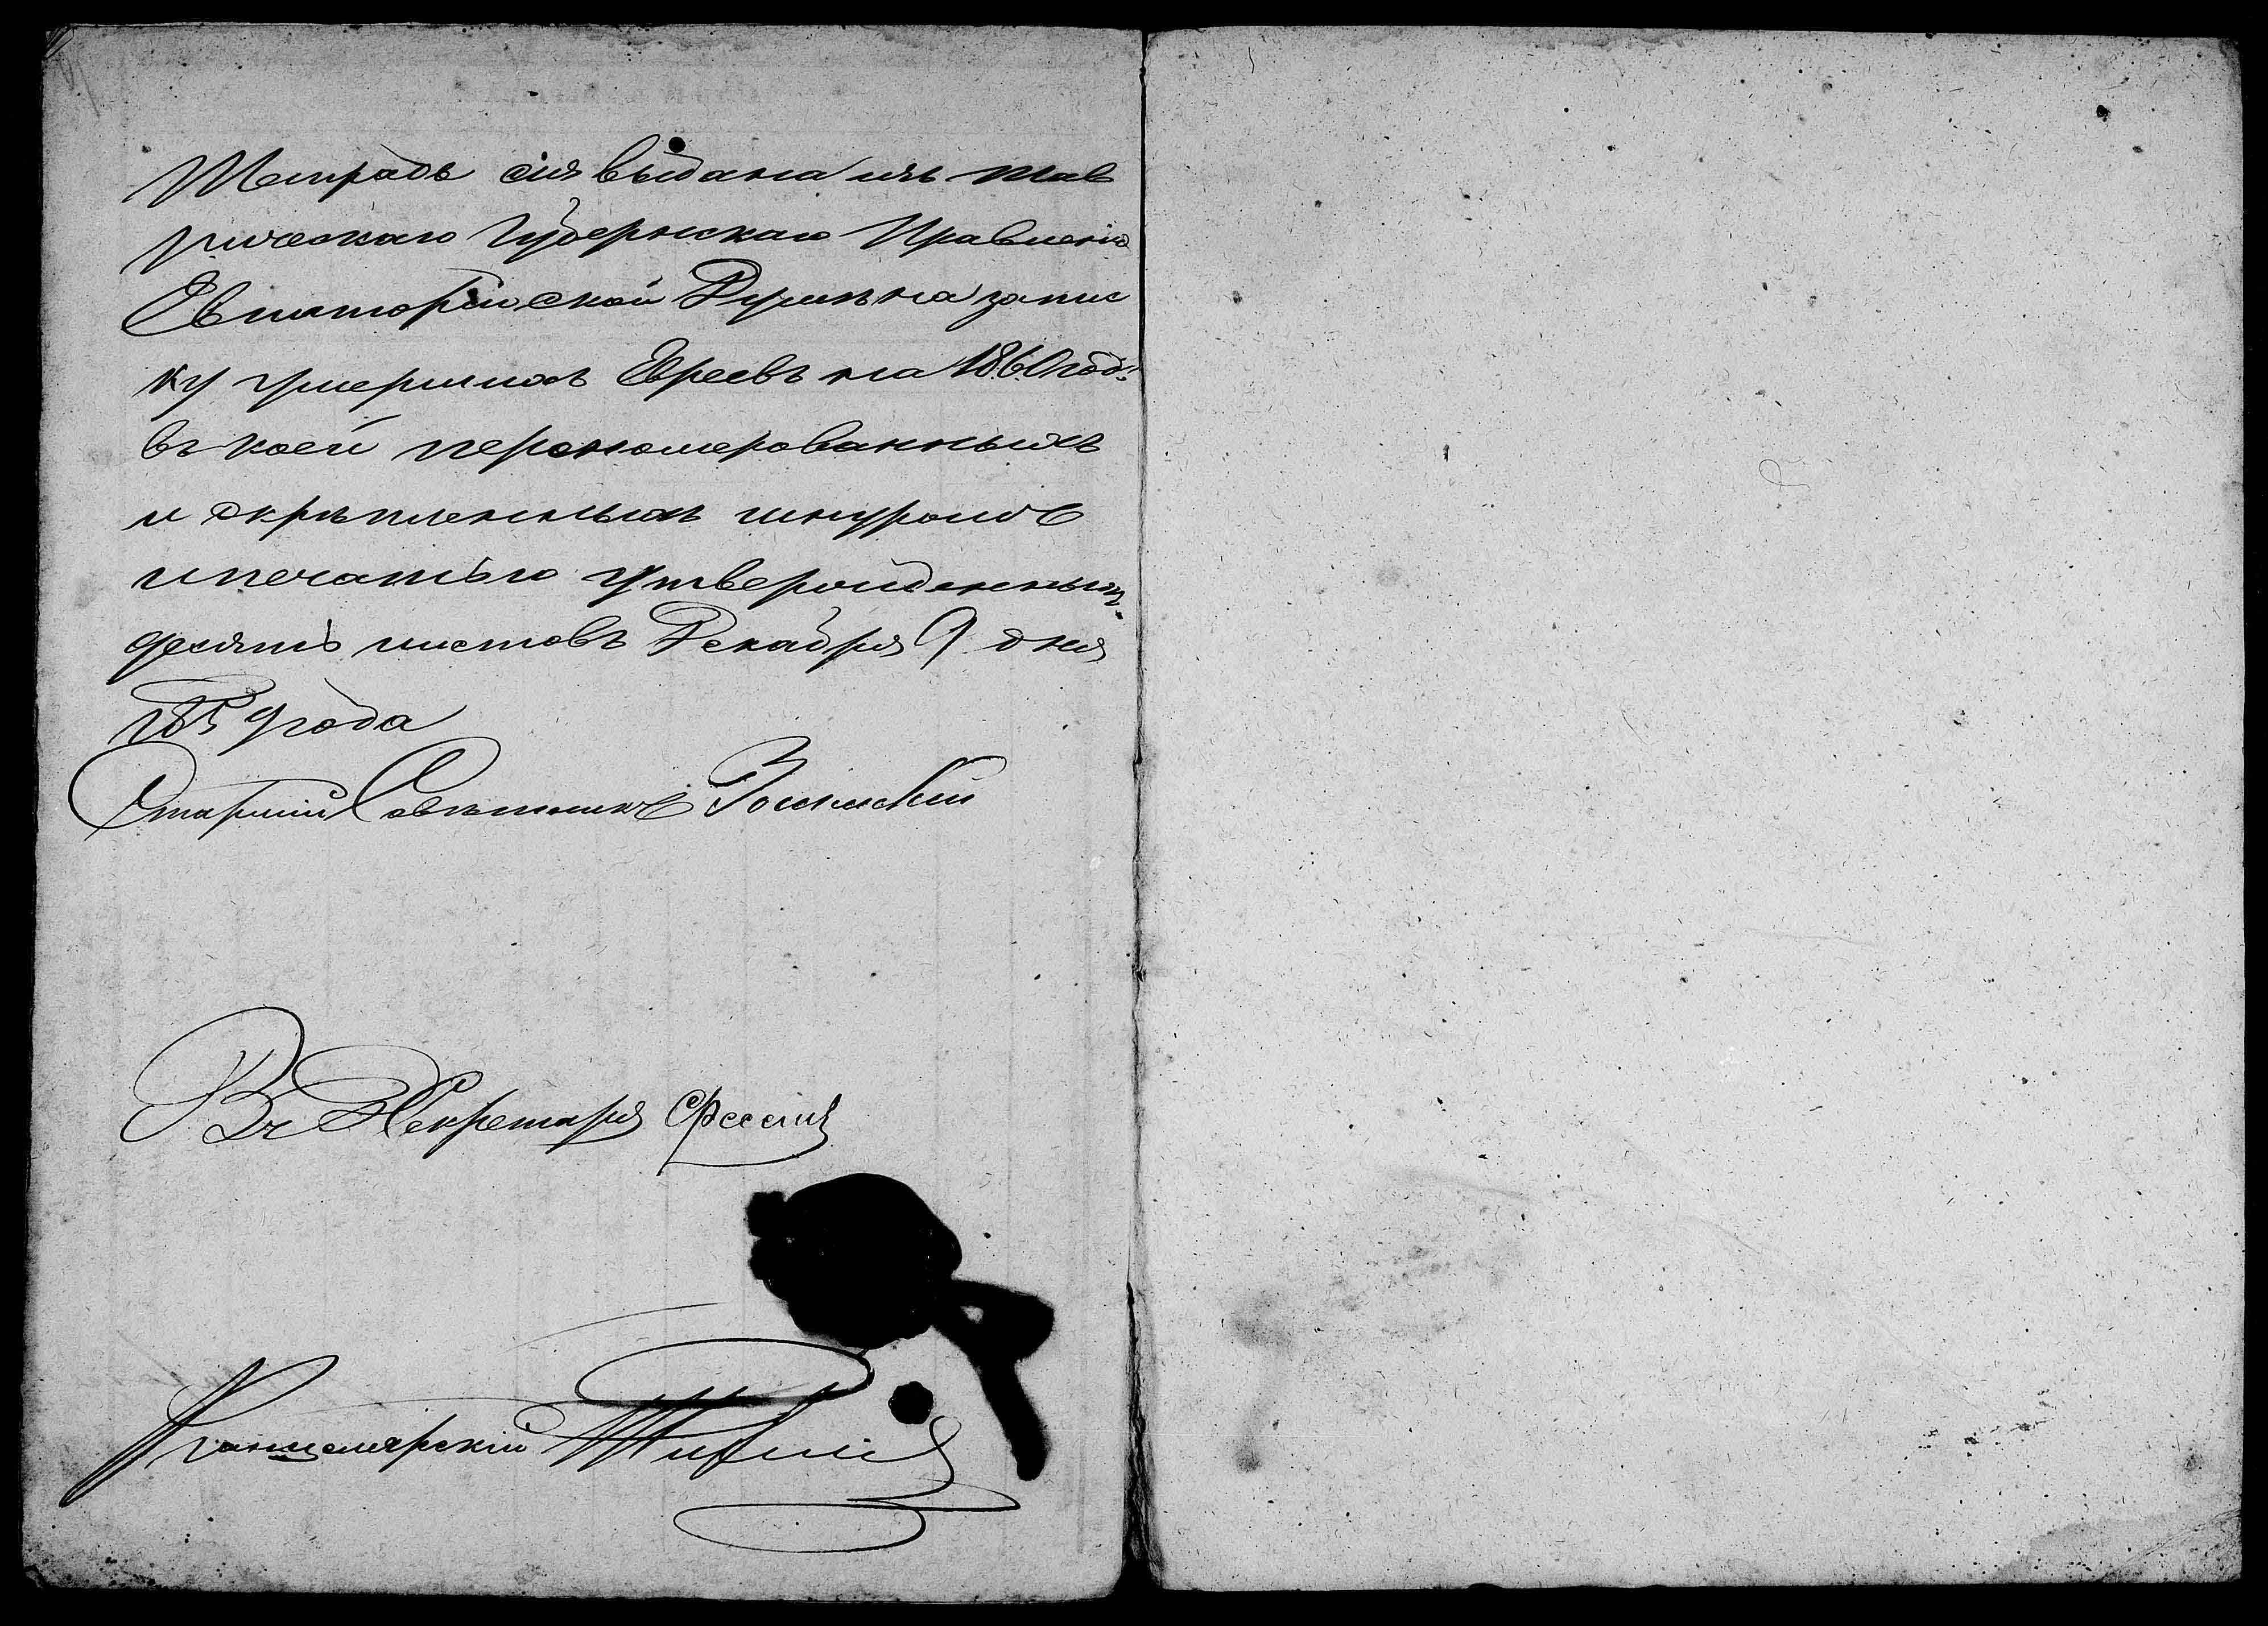 Тетрадь сія выдана изъ Тав
рическаго Губернскаго Правленія
Евпаторійской Думѣ на запис
ку умершихъ Евреевъ на 1860 годъ
въ коей перономерованныхъ
и скрѣпленныхъ шнуромъ
и печатью утвержденныхъ
десять листовъ Декабря 9 дня
1859 года
Старшій Совѣтникъ
Секретаря
Канцелярскій